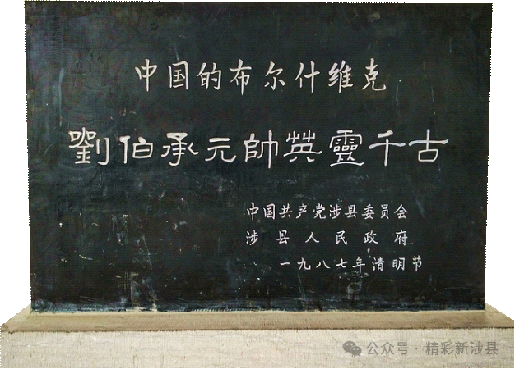 中国的布尔什维克
劉伯承元帥英靈千古
中国共产党涉县委员会
涉县人民政府
一九八七年清明节
公众号·精彩新涉县